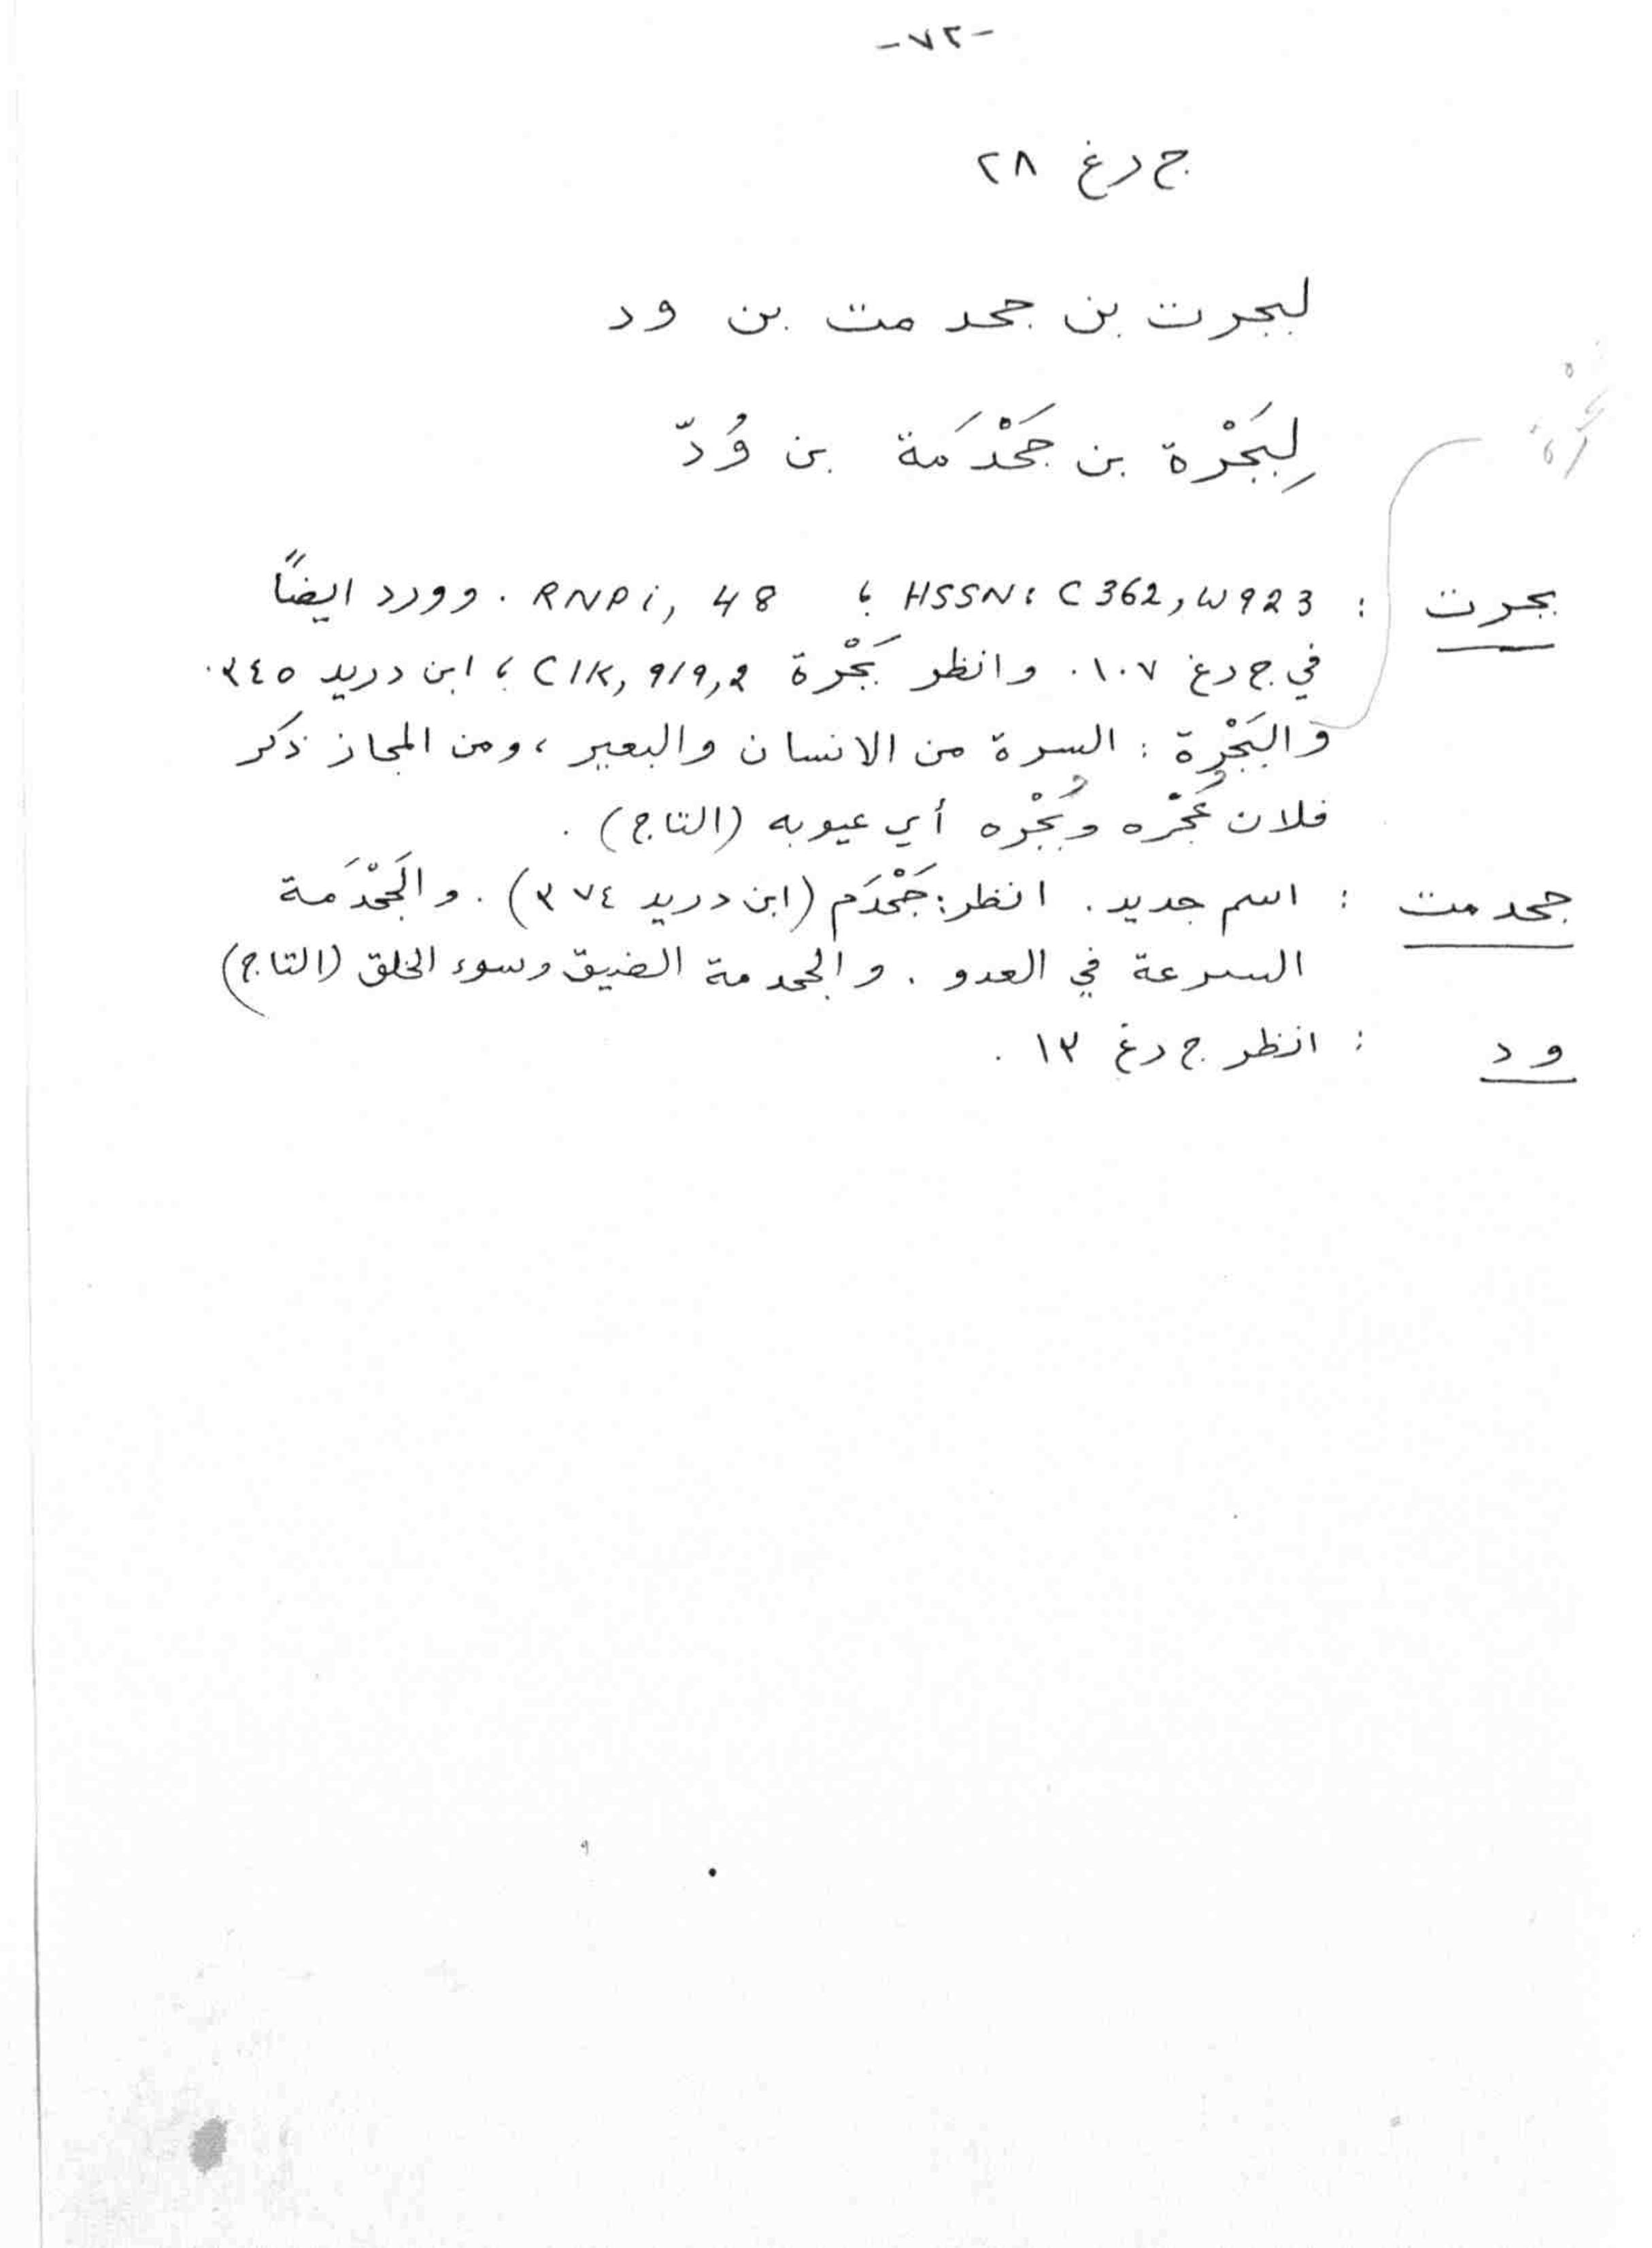 -٧٢-
ج د غ ٢٨
لبجرت بن جحدمت بن ود
لِبَجْرة بن جَحْدَمة بن وُدّ
بجرت : HSSN: C362, W923 ؛ RNPi, 48 . وورد ايضاً
في ج د غ ١٠٧. وانظر بَجْرة CIK, 919,2 ؛ ابن دريد ٣٤٥.
والبَجْرة : السرة من الانسان والبعير ، ومن المجاز ذكر
فلان عُجْره وبُجْره أي عيوبه (التاج) .
جحدمت : اسم جديد . انظر: جَحْدَم (ابن دريد ٣٧٤) . والجَحْدَمة
السرعة في العدو . والجحدمة الضيق وسوء الخلق (التاج)
ود : انظر ج د غ ١٣ .